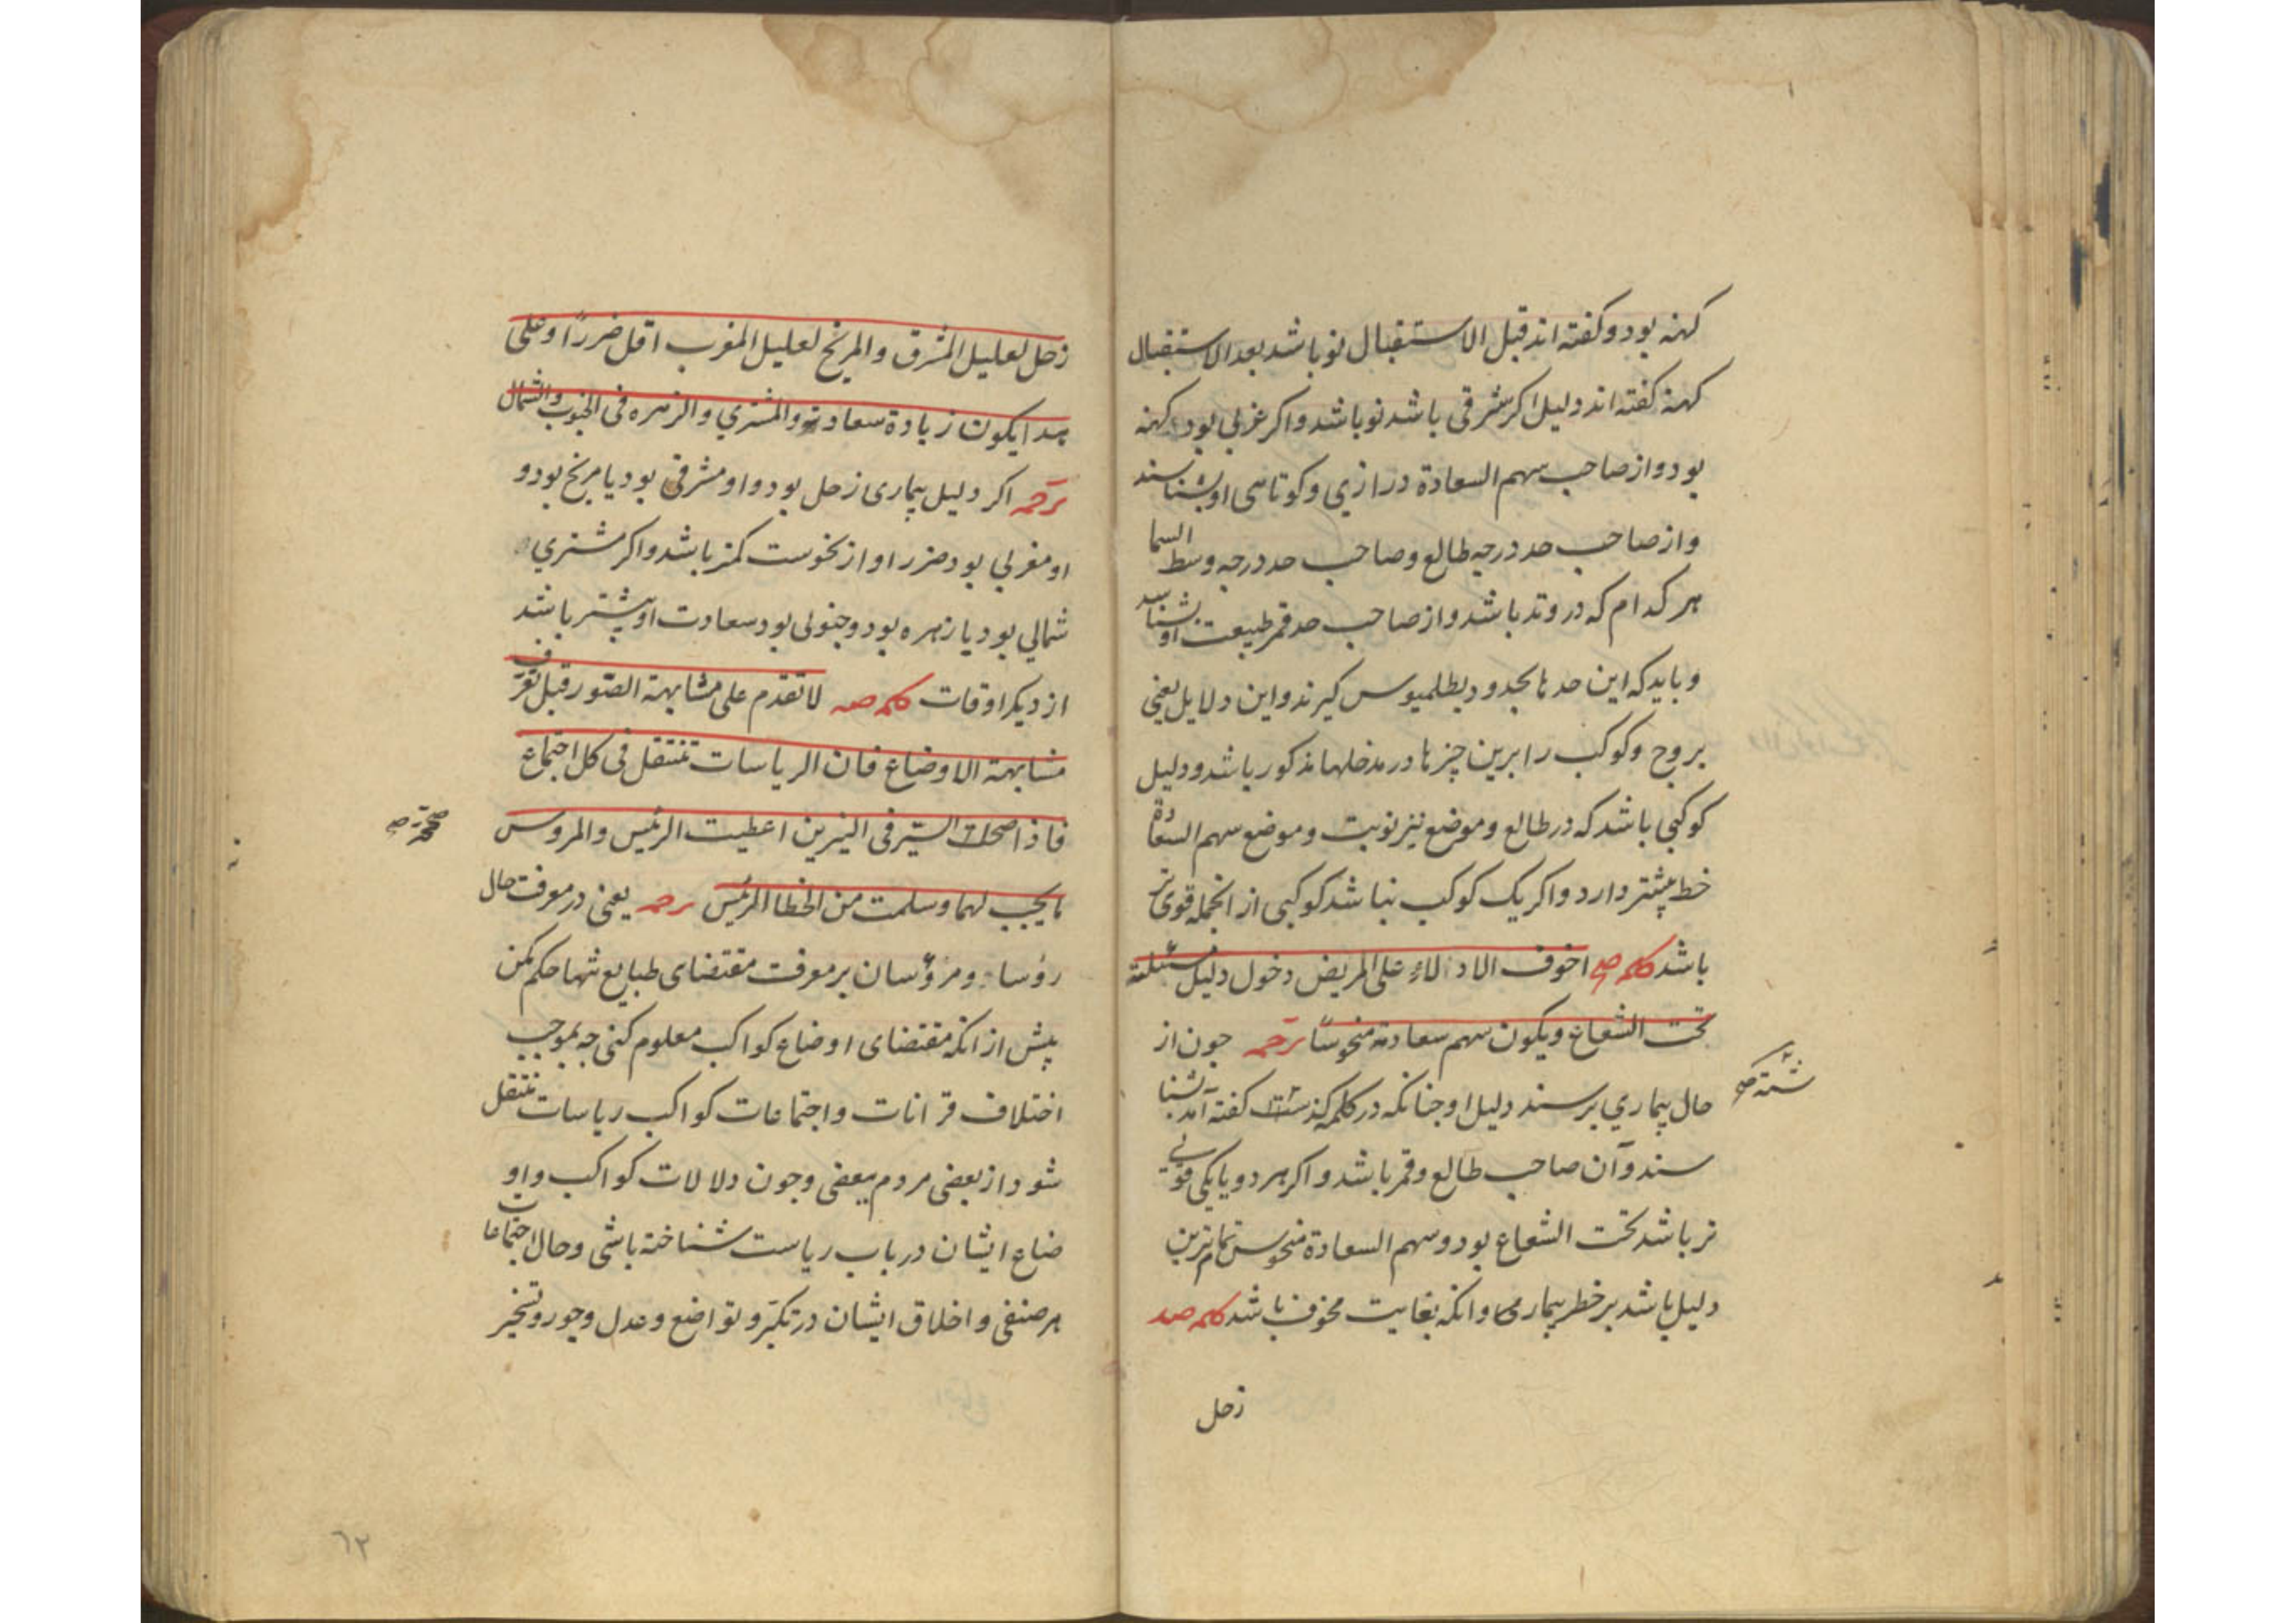 کهنه بود و کفته اند قبل الاستقبال نو باشد بعد الاستقبال
کهنه کفته اند دلیل اکر شرقی باشد نو باشد و اکر غربی بود کهنه
بود و از صاحب سهم السعادة درازي و کوتاهی او بشناسند
و از صاحب حد درجه طالع و صاحب حد درجه وسط السما
هر کدام که در وتد باشد و از صاحب حد قمر طبیعت او بشناسد
و باید که این حدها بحدود بطلمیوس کیرند و این دلایل یعنی
بروج و کوکب را برین چیزها در مدخلها مذکور باشد و دلیل
کوکبی باشد که در طالع و موضع نیز نوبت و موضع سهم السعادة
خط بیشتر دارد و اکر یک کوکب نباشد کوکبی از انجمله قوی تر
باشد کلمه صج اخوف الادلاء علی المریض دخول دلیل مسئلته
تحت الشعاع ویکون سهم سعادته منحوسًا ترجمه جون از
حال بیماري برسند دلیل او جنانکه در کلمه کذشته کفته آمد بشنا
شته صح
سند و آن صاحب طالع و قمر باشد و اکر هر دو یا یکی قوی
تر باشد تحت الشعاع بود و سهم السعادة منحوس تمام ترین
دلیل باشد بر خطر بیماری و انکه بغایت مخوف باشد کلمه صد
زحل
زحل لعلیل المشرق والمریخ لعلیل المغرب اقل ضررًا وعلی
ضد ایکون زیادة سعادته والمشتري والزهره فی الجنوب والشمال
ترجمه اکر دلیل بیماری زحل بود و او مشرقی بود یا مریخ بود و
او مغربی بود ضرر او از نحوست کمتر باشد و اکر مشتري
شمالي بود یا زهره بود و جنوبی بود سعادت او بیشتر باشد
از دیکر اوقات کلمه صه لا تقدم علی مشابهة الصور قبل تعرف
مشابهة الاوضاع فان الریاسات تنتقل فی کل اجتماع
فاذا صحت السیر فی النیرین اعطیت الرئیس والمروس
مایجب لهما وسلمت من الخطا الرئیس ترجمه یعنی در معرفت حال
رؤسا و مرؤسان بر معرفت مقتضای طبایع تنها حکم مکن
پیش از انکه مقتضای اوضاع کواکب معلوم کنی جه بموجب
اختلاف قرانات و اجتماعات کواکب ریاسات منتقل
شود از بعضی مردم ببعضی وجون دلالات کواکب و او
ضاع ایشان در باب ریاست شناخته باشی و حال اجتماعات
هر صنفی و اخلاق ایشان در تکبر و تواضع و عدل و جور و تسخیر
٦٢